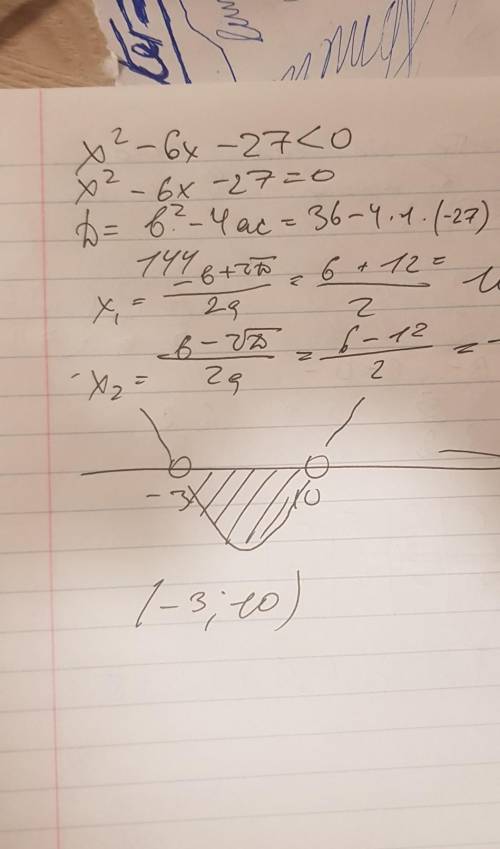 x² - 6x - 27 < 0
x² - 6x - 27 = 0
D = b² - 4ac = 36 - 4·1·(-27)
144
x₁ = (-b + √D)/2a = (6 + 12)/2 =
x₂ = (-b - √D)/2a = (6 - 12)/2 = -
-3 10
(-3; 10)